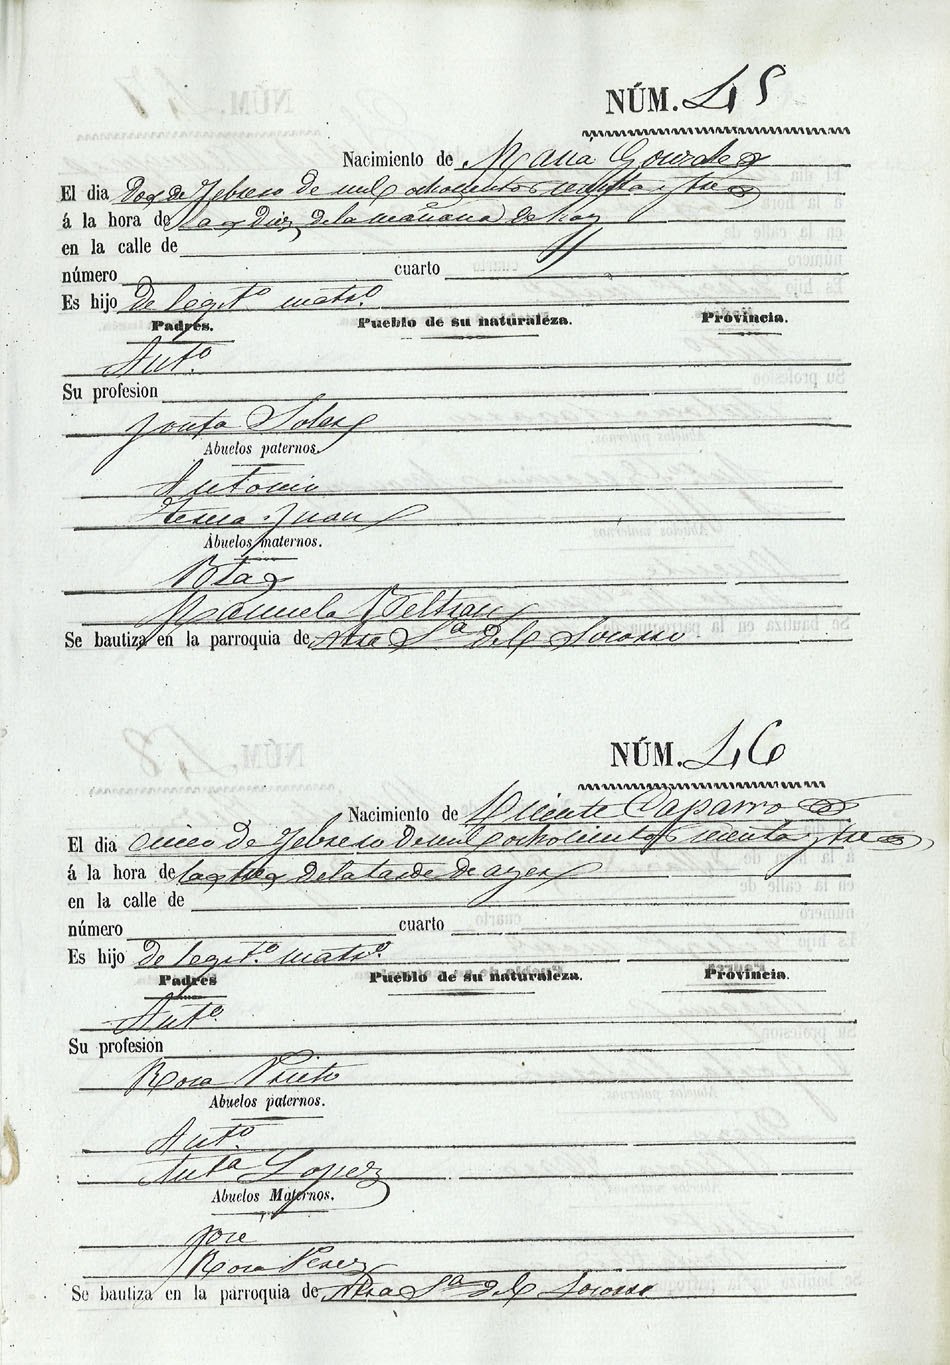 NÚM. 45
Nacimiento de Maria Gonzalez
El dia Dos de Febrero de mil ochocientos sesenta y tres
á la hora de las Diez de la mañana de hoy
en la calle de
número cuarto
Es hijo de legit.º matr.º
Padres. Pueblo de su naturaleza. Provincia.
Ant.º
Su profesion
Josefa Soler
Abuelos paternos.
Antonio
Teresa Juan
Abuelos maternos.
Blas
Manuela Beltran
Se bautiza en la parroquia de Ntra Sª del Socorro
NÚM. 46
Nacimiento de Vicente Caparro
El dia cinco de Febrero de mil ochocientos sesenta y tres
á la hora de las tres de la tarde de ayer
en la calle de
número cuarto
Es hijo de legit.º matr.º
Padres Pueblo de su naturaleza. Provincia.
Ant.º
Su profesion
Rosa Prieto
Abuelos paternos.
Ant.º
Antª Lopez
Abuelos Maternos.
Jose
Rosa Perez
Se bautiza en la parroquia de Ntra Sª del Socorro